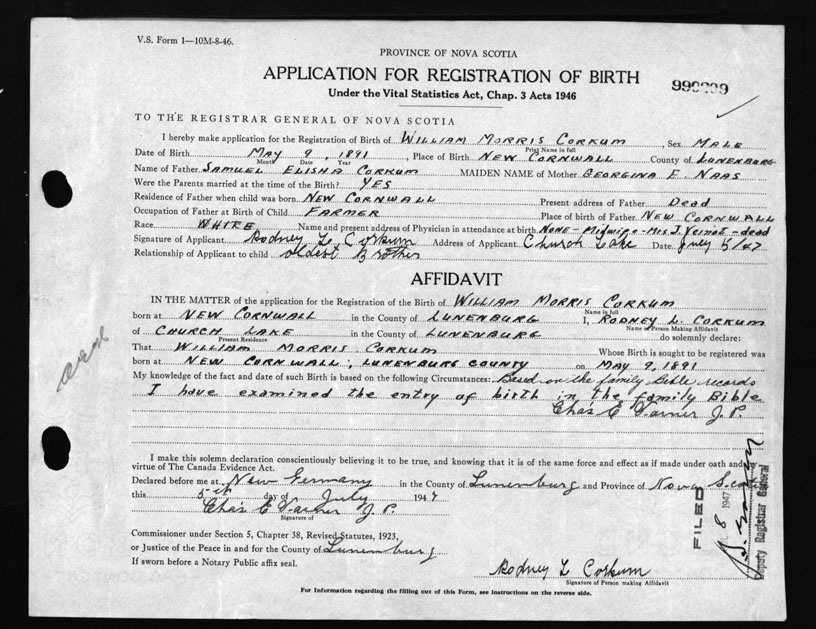 V.S. Form 1—10M-8-46.
PROVINCE OF NOVA SCOTIA
APPLICATION FOR REGISTRATION OF BIRTH
Under the Vital Statistics Act, Chap. 3 Acts 1946
TO THE REGISTRAR GENERAL OF NOVA SCOTIA
I hereby make application for the Registration of Birth of WILLIAM MORRIS CORKUM, Sex MALE
Print Name in full
Date of Birth MAY 9, 1891, Place of Birth NEW CORNWALL County of LUNENBURG
Month Date Year
Name of Father SAMUEL ELISHA CORKUM MAIDEN NAME of Mother GEORGINA E. NAAS
Were the Parents married at the time of the Birth? YES
Residence of Father when child was born NEW CORNWALL Present address of Father Dead
Occupation of Father at Birth of Child FARMER Place of birth of Father NEW CORNWALL
Race WHITE Name and present address of Physician in attendance at birth NONE - Midwife - Mrs J. Veinot - dead
Signature of Applicant Rodney L. Corkum Address of Applicant Church Lake Date July 5/47
Relationship of Applicant to child oldest Brother
AFFIDAVIT
IN THE MATTER of the application for the Registration of the Birth of WILLIAM MORRIS CORKUM
Name in full
born at NEW CORNWALL in the County of LUNENBURG I, RODNEY L. CORKUM
Name of Person Making Affidavit
of CHURCH LAKE in the County of LUNENBURG do solemnly declare:
Present Residence
That WILLIAM MORRIS CORKUM Whose Birth is sought to be registered was
born at NEW CORNWALL, LUNENBURG COUNTY on MAY 9, 1891
My knowledge of the fact and date of such Birth is based on the following Circumstances: Based on the family Bible records
I have examined the entry of birth in the family Bible
Chas E J.P.
I make this solemn declaration conscientiously believing it to be true, and knowing that it is of the same force and effect as if made under oath and by
virtue of The Canada Evidence Act.
Declared before me at New Germany in the County of Lunenburg and Province of Nova Scotia
this 5th day of July 1947
Chas E J.P.
Signature of
Commissioner under Section 5, Chapter 38, Revised Statutes, 1923,
or Justice of the Peace in and for the County of Lunenburg
If sworn before a Notary Public affix seal.
Rodney L Corkum
Signature of Person making Affidavit
For Information regarding the filling out of this Form, see instructions on the reverse side.
FILED
8 1947
Deputy Registrar General